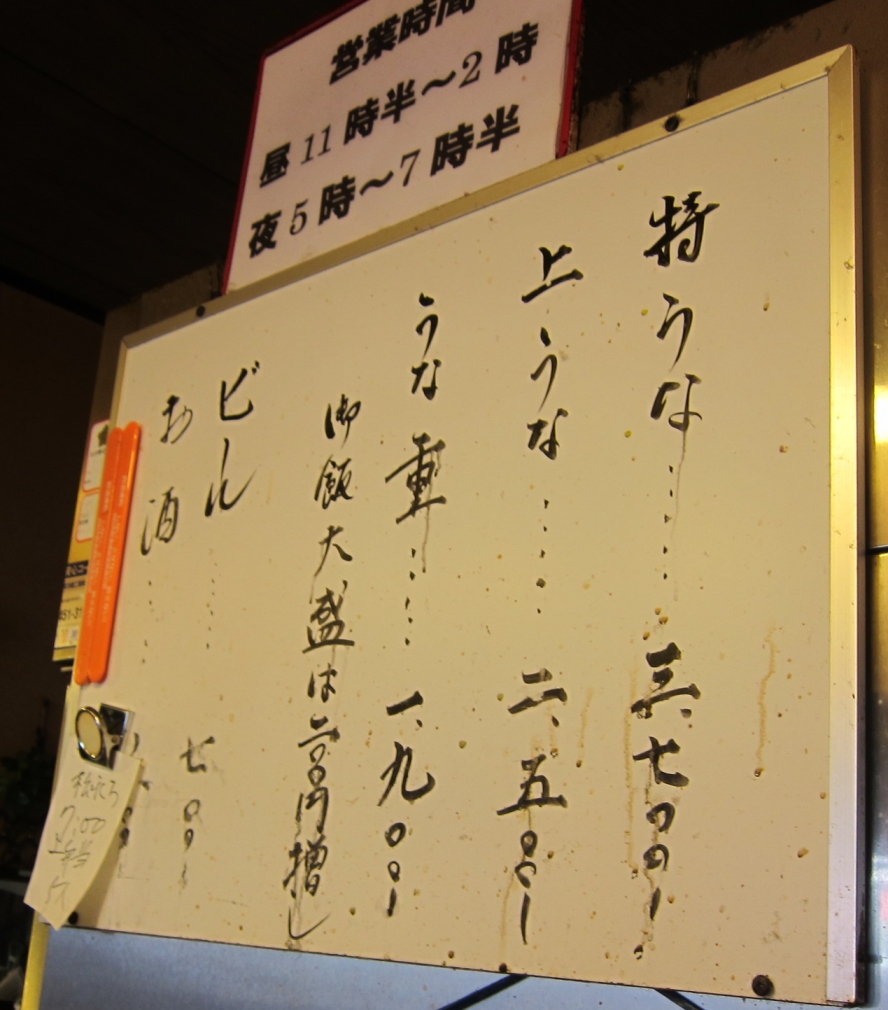 営業時間
昼11時半～2時
夜5時～7時半
特うな……三、七〇〇ー
上うな……二、五〇〇ー
うな重……一、九〇〇ー
御飯大盛は二〇〇円増し
ビール……七〇〇
お酒……
7:00
上弁当